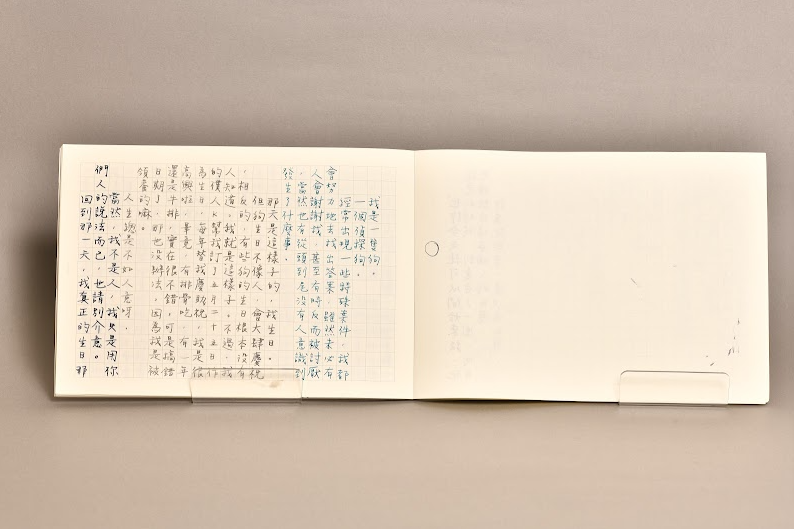 我是一隻狗。
一個偵探狗。
經常出現一些特殊案件,我都
會努力地去找出答案,雖然未必有
人會謝謝我,甚至有時反而被討厭
,當然也有從頭到尾沒有人意識到
發生了什麼事。
那天是這樣子的,我生日。
但狗生日不像人,會大肆慶祝
,相反的,有些狗的生日根本沒有
人知道。我就是這樣子。不過,我
的僕人K幫我訂了五月二十五日作
為生日,每年替我慶祝祝。我是很
高興啦,畢竟,有排骨吃,有一年
還是牛排,實在很不錯。可是搞錯
日期了,那也沒辦法,因為我是被
領養的嘛。
人生總是不如人意呀。
當然,我不是人,我只是用你
們人的說法而已,也請別介意。
回到那一天,我真正的生日那